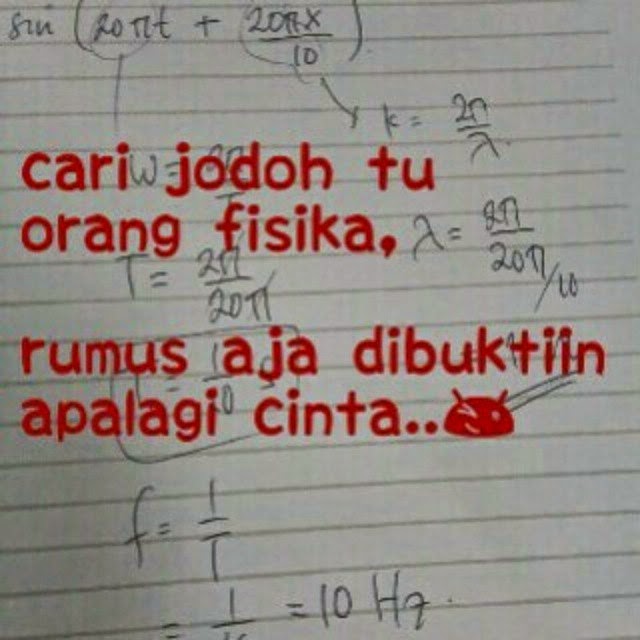 sin (20πt + 20πx/10)
k = 2π/λ
cari jodoh tu
ω =
orang fisika,
λ = 2π/20π/10
T = 2π/20π
rumus aja dibuktiin
apalagi cinta..
f = 1/T
= 10 Hz.